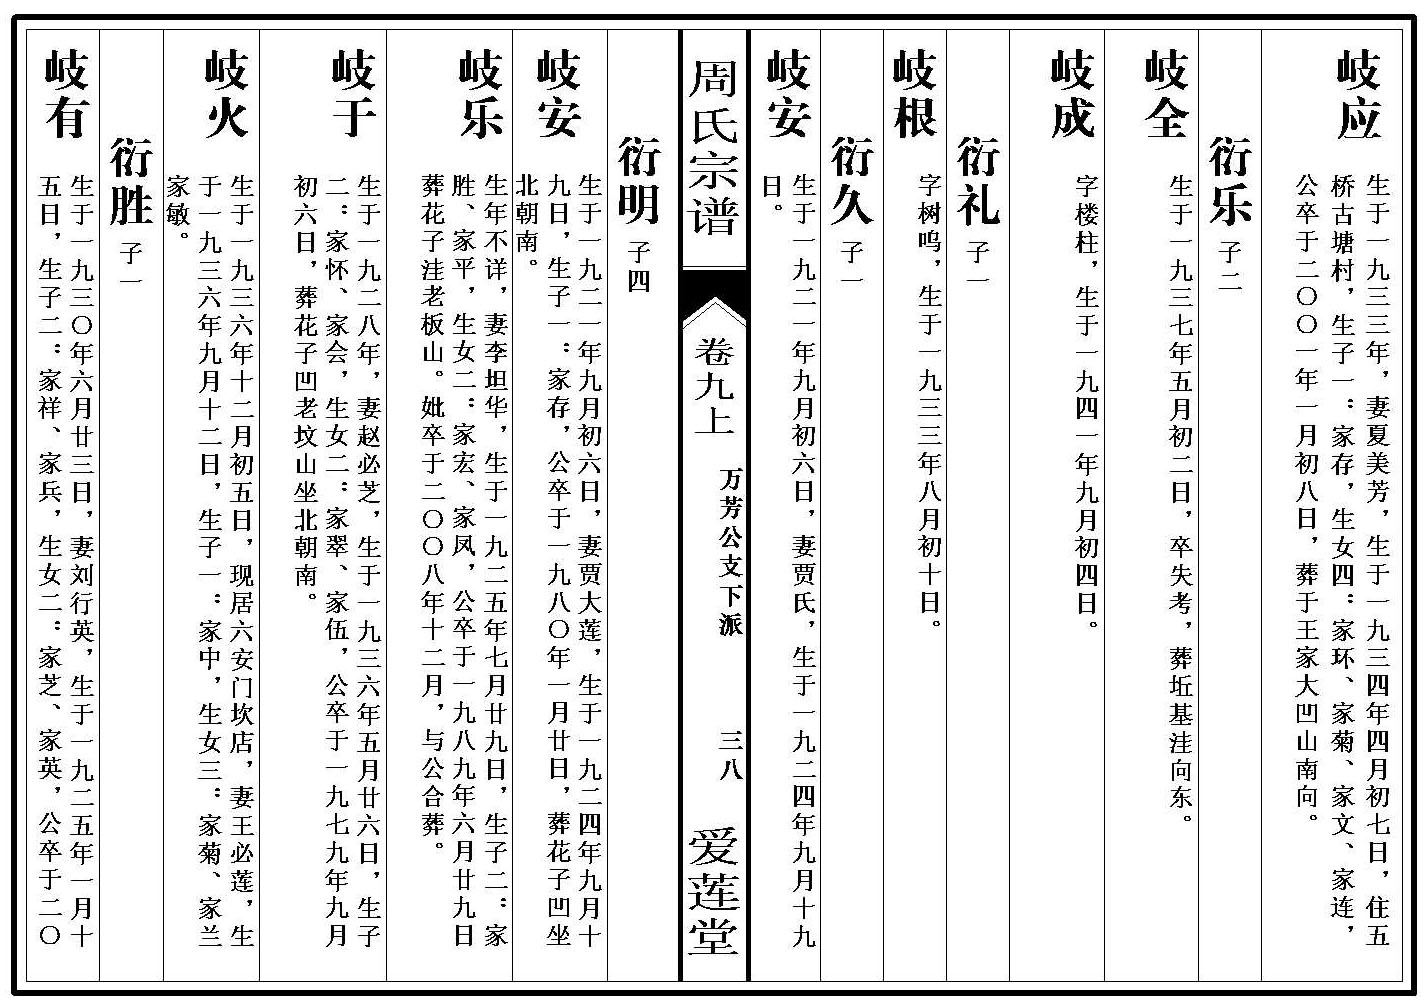 岐应
生于一九三三年，妻夏美芳，生于一九三四年四月初七日，住五
桥古塘村，生子一：家存，生女四：家环、家菊、家文、家连，
公卒于二〇〇一年一月初八日，葬于王家大凹山南向。
衍乐 子二
岐全
生于一九三七年五月初二日，卒失考，葬坵基洼向东。
岐成
字楼柱，生于一九四一年九月初四日。
衍礼 子一
岐根
字树鸣，生于一九三三年八月初十日。
衍久 子一
岐安
生于一九二一年九月初六日，妻贾氏，生于一九二四年九月十九
日。
周氏宗谱
卷九上
万芳公支下派
三八
爱莲堂
衍明 子四
岐安
生于一九二一年九月初六日，妻贾大莲，生于一九二四年九月十
九日，生子一：家存，公卒于一九八〇年一月廿日，葬花子凹坐
北朝南。
岐乐
生年不详，妻李坦华，生于一九二五年七月廿九日，生子二：家
胜、家平，生女二：家宏、家凤，公卒于一九八九年六月廿九日
葬花子洼老板山。妣卒于二〇〇八年十二月，与公合葬。
岐于
生于一九二八年，妻赵必芝，生于一九三六年五月廿六日，生子
二：家怀、家会，生女二：家翠、家伍，公卒于一九七九年九月
初六日，葬花子凹老坟山坐北朝南。
岐火
生于一九三六年十二月初五日，现居六安门坎店，妻王必莲，生
于一九三六年九月十二日，生子一：家中，生女三：家菊、家兰
家敏。
衍胜 子一
岐有
生于一九三〇年六月廿三日，妻刘行英，生于一九二五年一月十
五日，生子二：家祥、家兵，生女二：家芝、家英，公卒于二〇